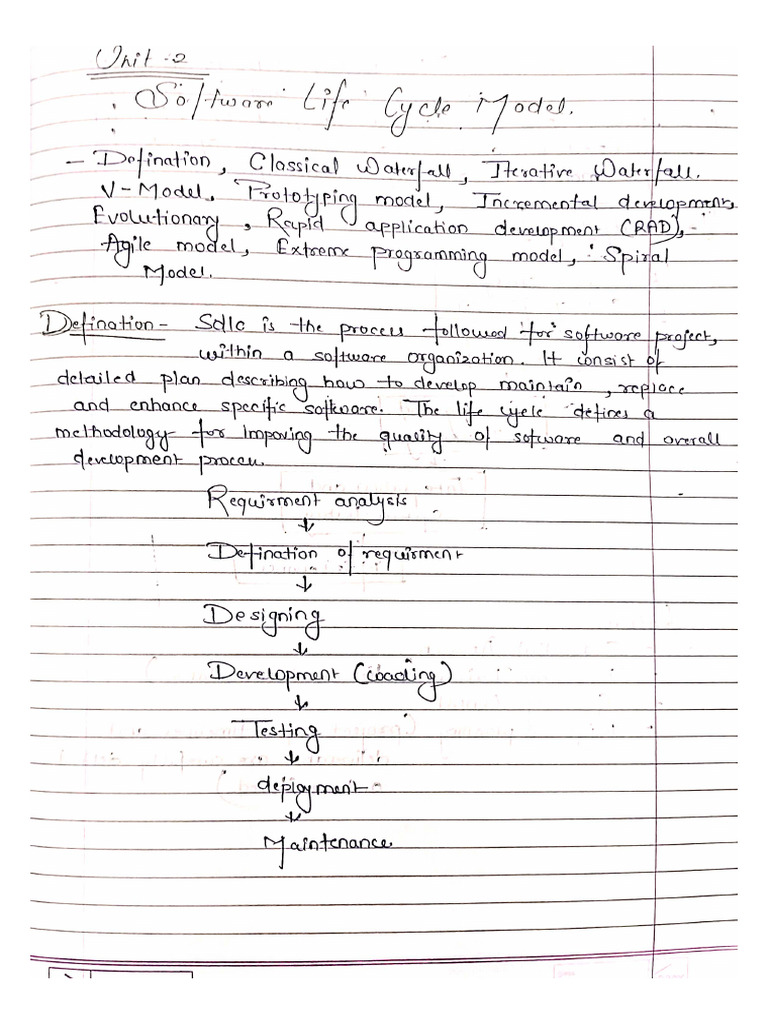 Unit - 2
Software Life Cycle Model.
- Defination, Classical Waterfall, Iterative Waterfall.
V-Model, Prototyping model, Incremental development,
Evolutionary, Rapid application development (RAD),
Agile model, Extreme programming model, Spiral
Model.
Defination - Sdlc is the process followed for software project,
within a software organization. It consist of
detailed plan describing how to develop maintain, replace
and enhance specific software. The life cycle defines a
methodology for Improving the quality of sotware and overall
development process.
Requirment analysis
↓
Defination of requirment
↓
Designing
↓
Development (coading)
↓
Testing
↓
deployment -
↓
Maintenance